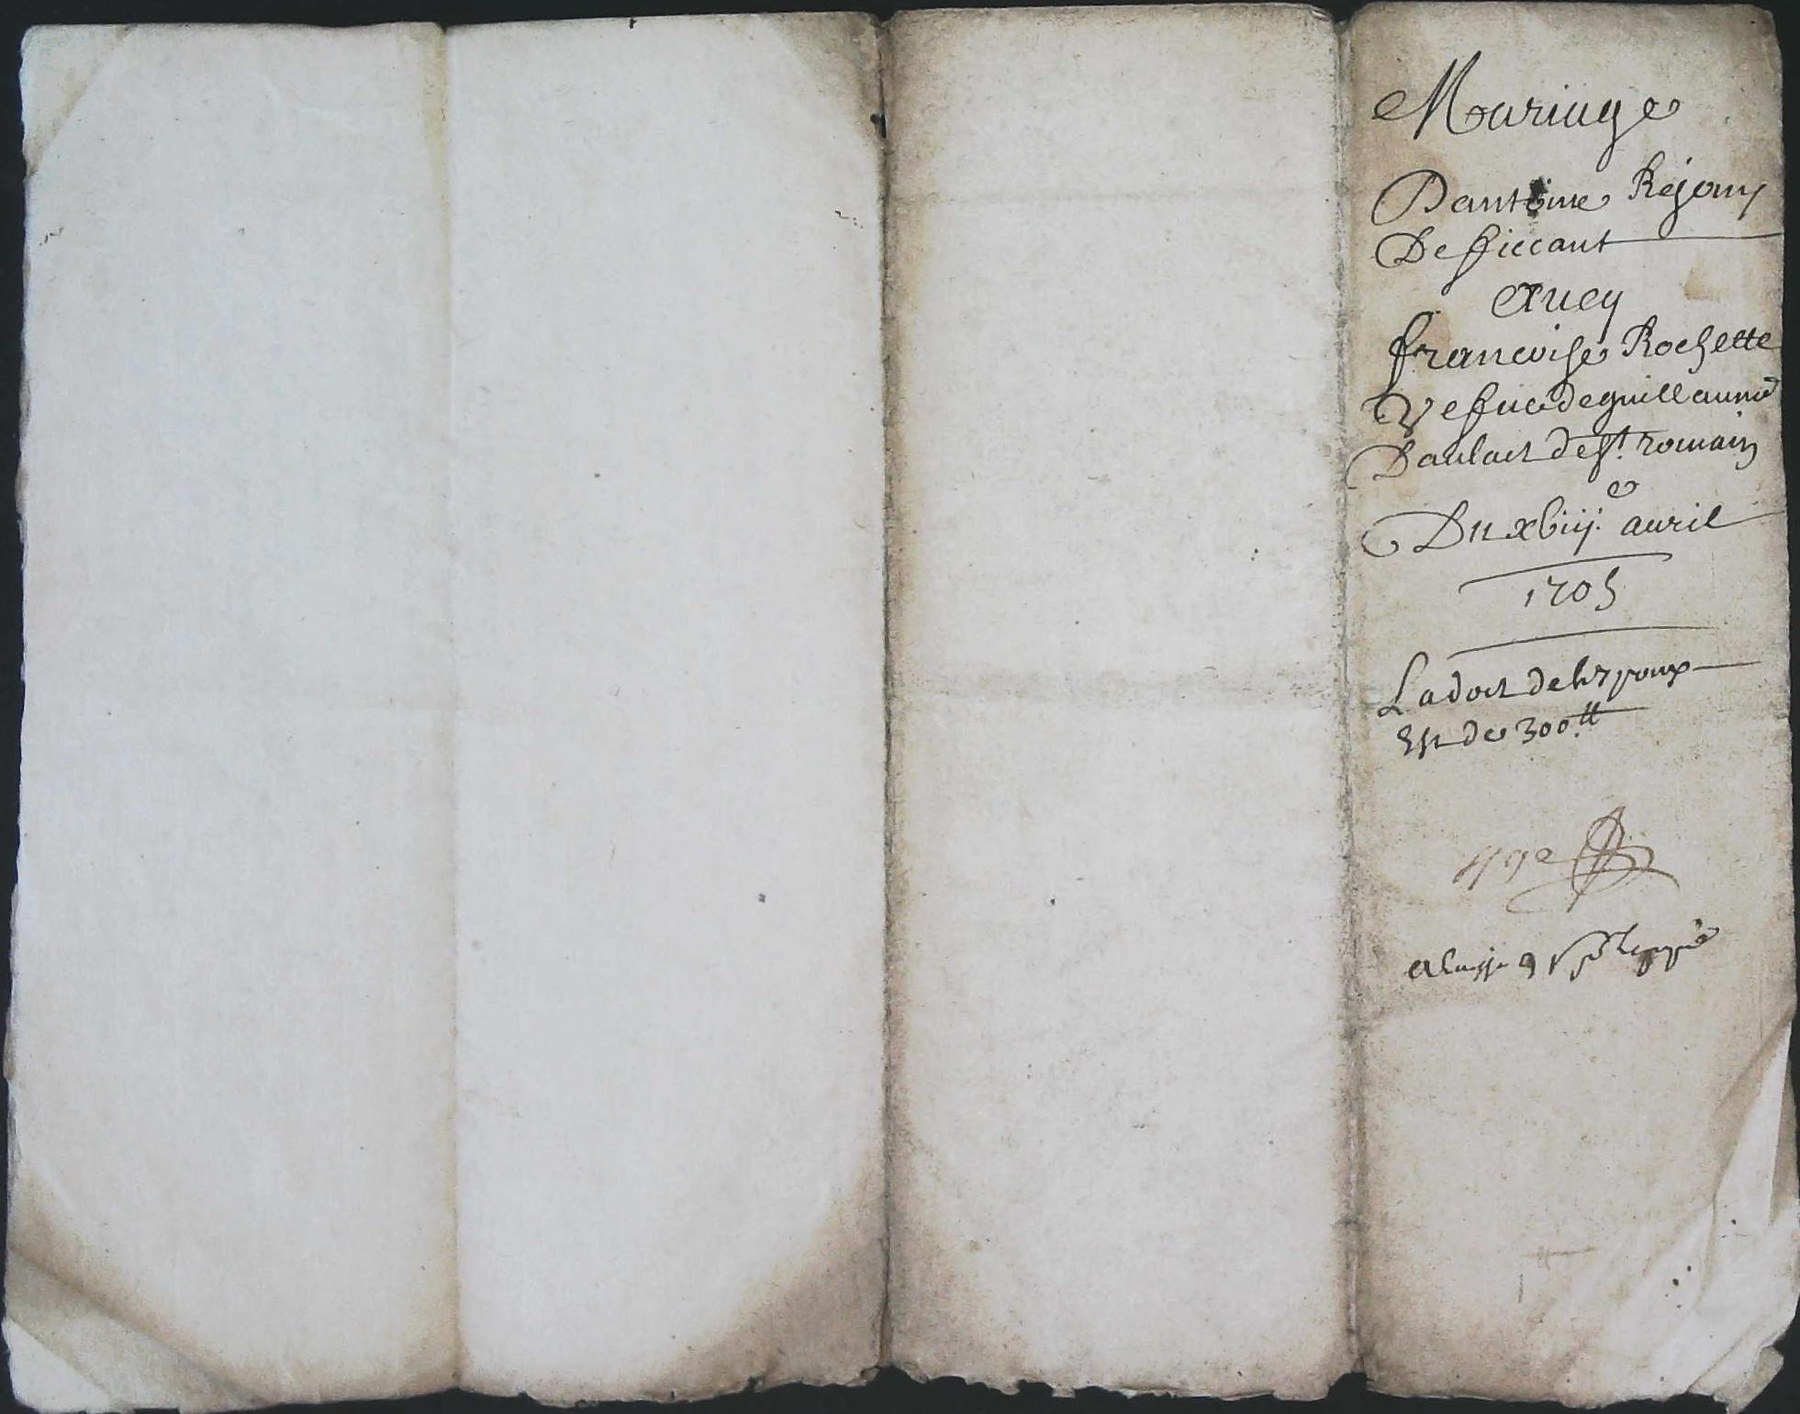 Mariage
Dantoine Rejany
De ficcant
Auec
francoise Rochette
Vefue de guillaume
Daulact de st. romain
Du xbiij.e auril
1705
La dot de lespoux
Est de 300.tt